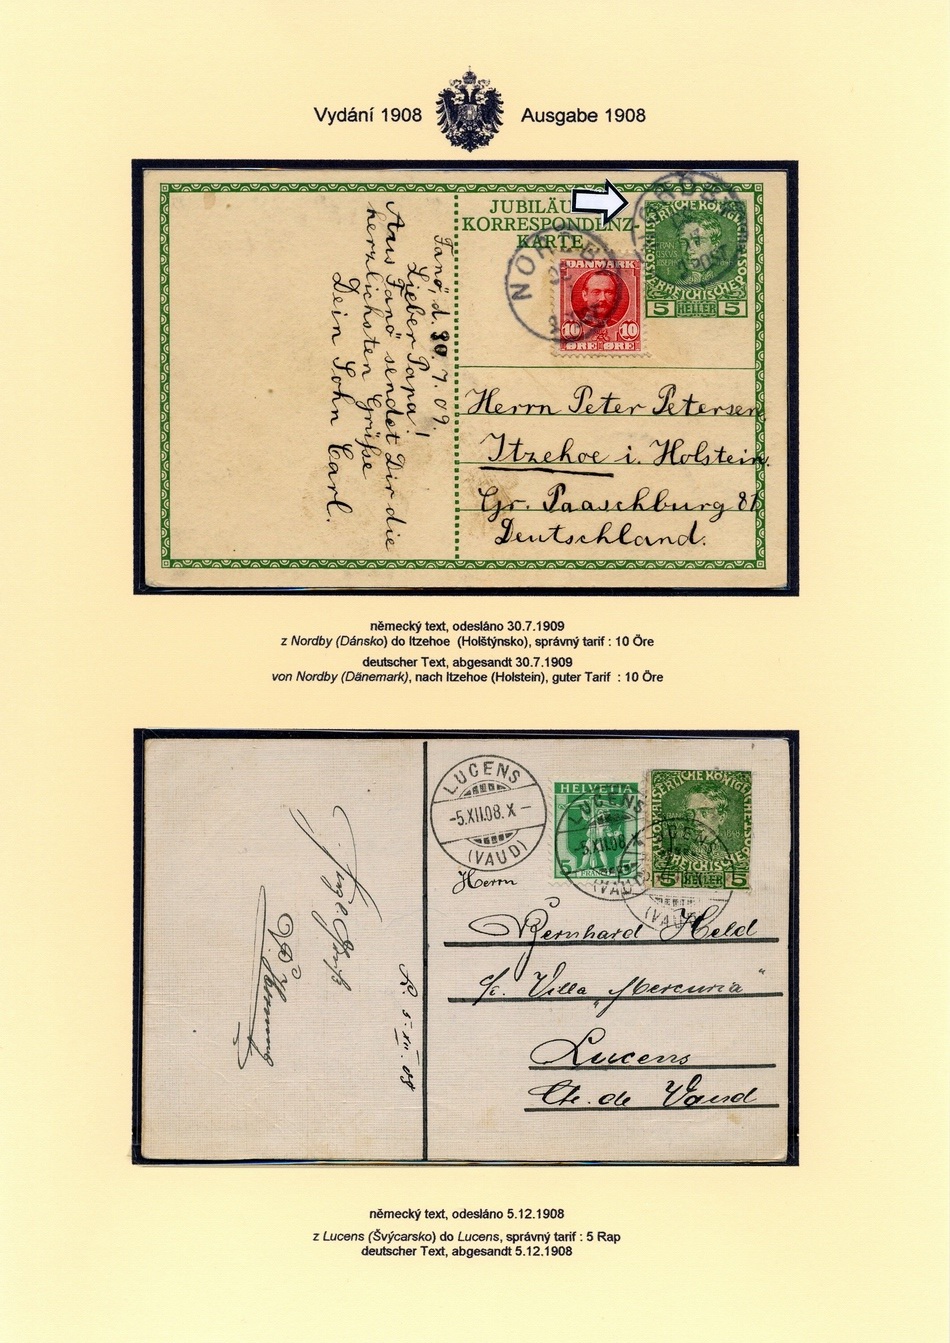 Vydání 1908
Ausgabe 1908
JUBILÄU
KORRESPONDENZ-
KARTE
NORDBY
DANMARK
10 10
ØRE ØRE
5 HELLER 5
Fanö, d. 30. 7. 09.
Lieber Papa!
Aus Fanö sendet Dir die
herzlichsten Grüße
Dein Sohn Carl.
Herrn Peter Petersen
Itzehoe i. Holstein.
Gr. Paaschburg 81
Deutschland.
německý text, odesláno 30.7.1909
z Nordby (Dánsko) do Itzehoe (Holštýnsko), správný tarif : 10 Öre
deutscher Text, abgesandt 30.7.1909
von Nordby (Dänemark), nach Itzehoe (Holstein), guter Tarif : 10 Öre
LUCENS
-5.XII.08.X-
(VAUD)
HELVETIA
5
LUCENS
-5.XII.08
(VAUD)
5 HELLER 5
(VAUD)
Herrn
Bernhard Held
Villa "Mercuria"
Lucens
Ct. de Vaud
L. 5. XII. 08
německý text, odesláno 5.12.1908
z Lucens (Švýcarsko) do Lucens, správný tarif : 5 Rap
deutscher Text, abgesandt 5.12.1908